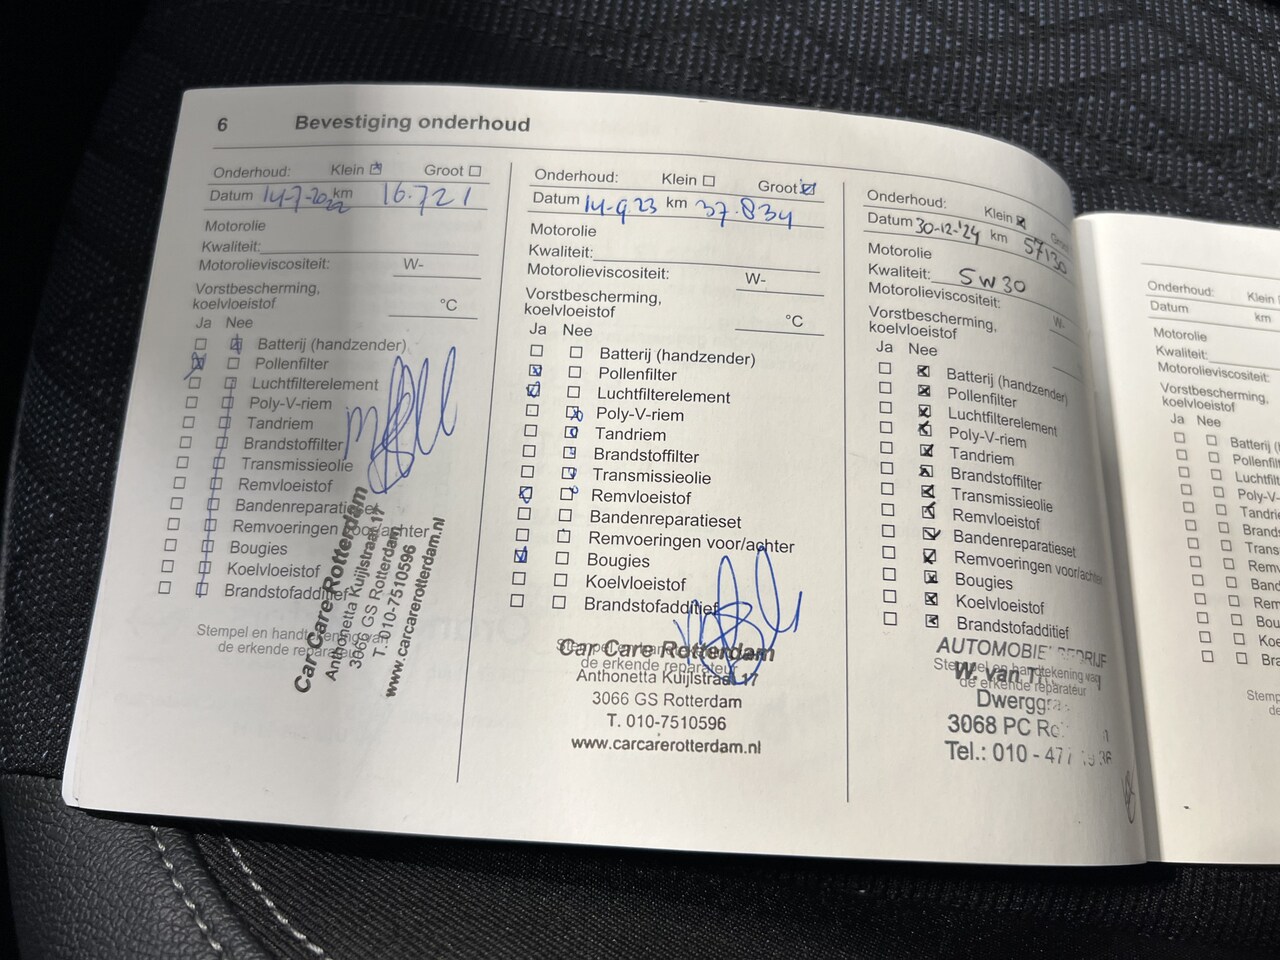 6 Bevestiging onderhoud
Onderhoud: Klein Groot
Datum 14-7-2022 km 16.721
Motorolie
Kwaliteit:
Motorolieviscositeit: W-
Vorstbescherming,
koelvloeistof °C
Ja Nee
Batterij (handzender)
Pollenfilter
Luchtfilterelement
Poly-V-riem
Tandriem
Brandstoffilter
Transmissieolie
Remvloeistof
Bandenreparatieset
Remvoeringen voor/achter
Bougies
Koelvloeistof
Brandstofadditief
Stempel en handtekening van
de erkende reparateur
Car Care Rotterdam
Anthonetta Kuijlstraat 17
3066 GS Rotterdam
T. 010-7510596
www.carcarerotterdam.nl
Onderhoud: Klein Groot
Datum 14-9-23 km 37.834
Motorolie
Kwaliteit:
Motorolieviscositeit: W-
Vorstbescherming,
koelvloeistof °C
Ja Nee
Batterij (handzender)
Pollenfilter
Luchtfilterelement
Poly-V-riem
Tandriem
Brandstoffilter
Transmissieolie
Remvloeistof
Bandenreparatieset
Remvoeringen voor/achter
Bougies
Koelvloeistof
Brandstofadditief
Stempel en
de erkende reparateur
Car Care Rotterdam
Anthonetta Kuijlstraat 17
3066 GS Rotterdam
T. 010-7510596
www.carcarerotterdam.nl
Onderhoud: Klein Groot
Datum 30-12-'24 km 57130
Motorolie
Kwaliteit: 5W30
Motorolieviscositeit: W-
Vorstbescherming,
koelvloeistof
Ja Nee
Batterij (handzender)
Pollenfilter
Luchtfilterelement
Poly-V-riem
Tandriem
Brandstoffilter
Transmissieolie
Remvloeistof
Bandenreparatieset
Remvoeringen voor/achter
Bougies
Koelvloeistof
Brandstofadditief
AUTOMOBIELBEDRIJF
Stempel en handtekening van
de erkende reparateur
W. van
3068 PC
Tel.: 010 - 47
Onderhoud: Klein
Datum km
Motorolie
Kwaliteit:
Motorolieviscositeit:
Vorstbescherming,
koelvloeistof
Ja Nee
Batterij (
Pollenfil
Luchtfilt
Poly-V-
Tandri
Brands
Trans
Remv
Band
Rem
Bou
Koe
Bra
Stemp
de